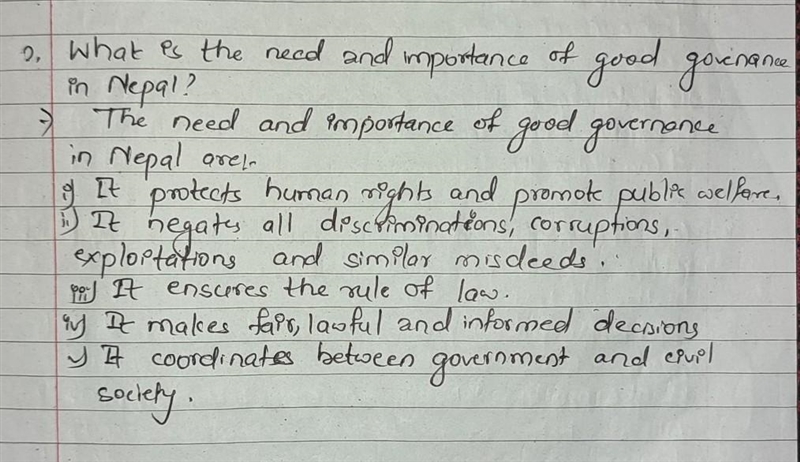 Q. What is the need and importance of good govenance
in Nepal?
⇒ The need and importance of good governance
in Nepal are:-
i) It protects human rights and promote public welfare.
ii) It negates all discriminations, corruptions,
exploitations and similar misdeeds.
iii) It ensures the rule of law.
iv) It makes fair, lawful and informed decisions
v) It coordinates between government and civil
society.